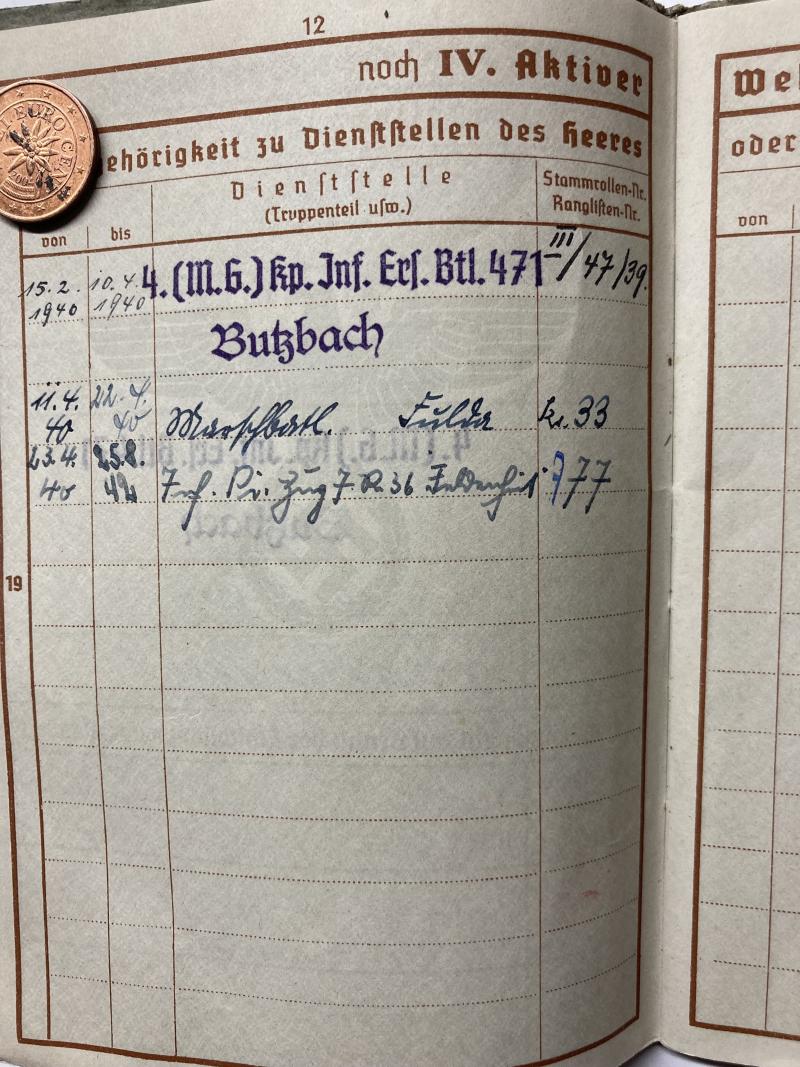 12
noch IV. Aktiver
ehörigkeit zu Dienststellen des Heeres
von
bis
Dienststelle
(Truppenteil usw.)
Stammrollen-Nr.
Ranglisten-Nr.
15.2. 1940
10.4. 1940
4.(M.G.) Kp. Inf. Ers. Btl. 471
Butzbach
III/47/39.
11.4. 40
22.4. 40
Marschbatl. Fulda
33
23.4. 40
25.8. 42
Pi. Zug J. R. 36
77
19
We
oder
von
EURO CENT